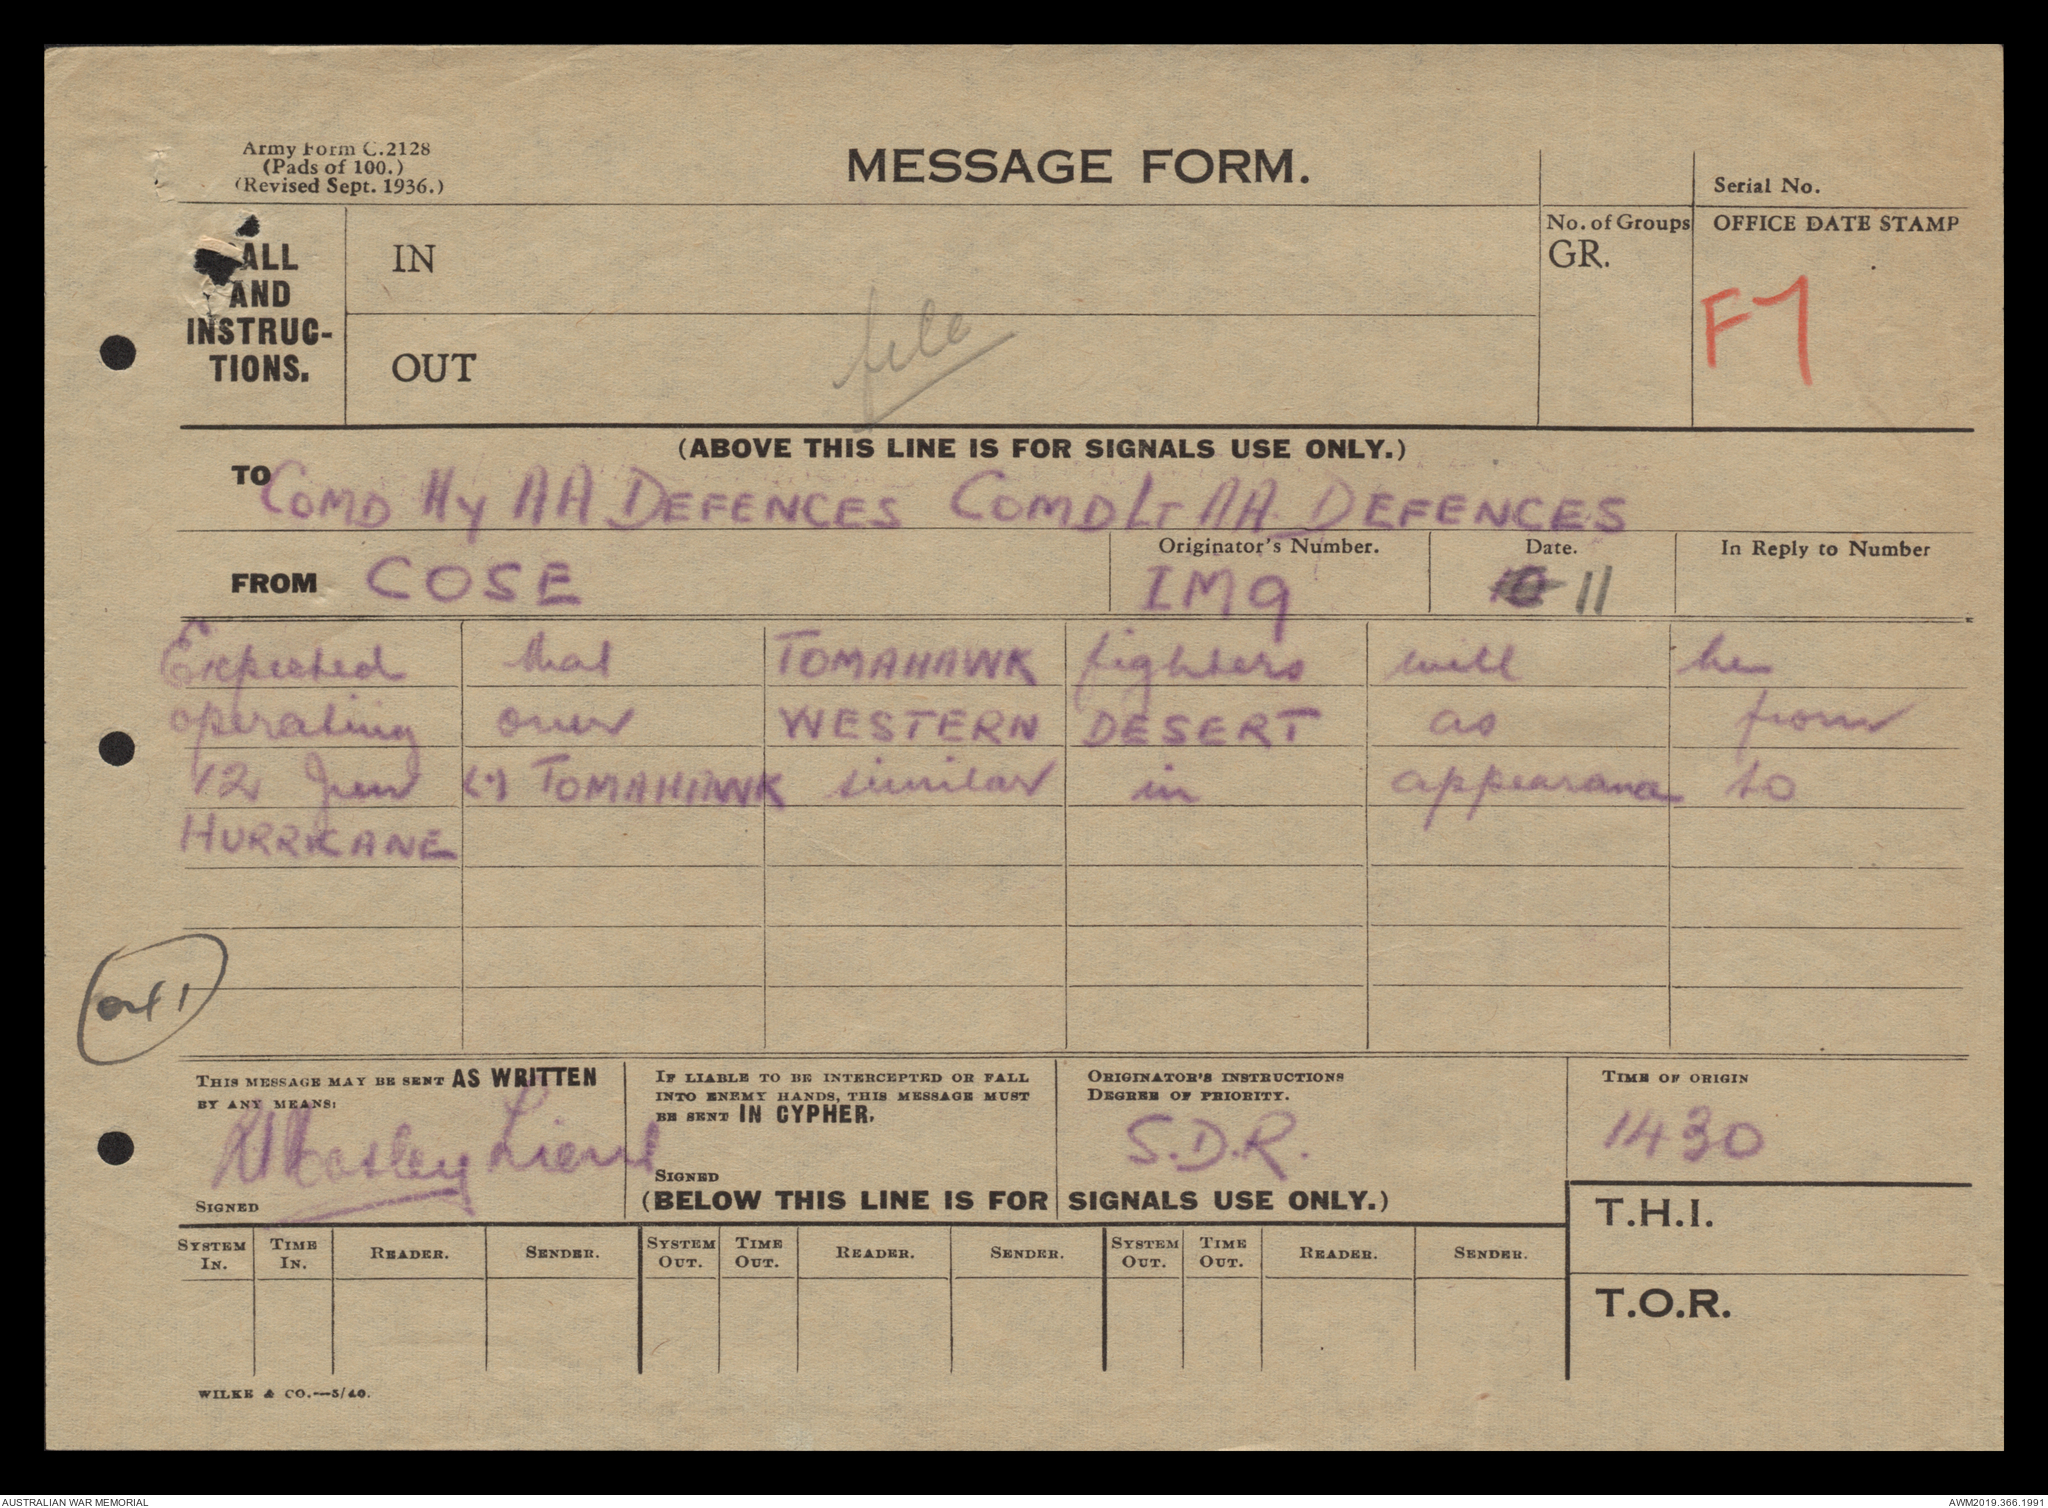 Army Form C.2128
(Pads of 100.)
(Revised Sept. 1936.)
MESSAGE FORM.
Serial No.
ALL
AND
INSTRUC-
TIONS.
IN
OUT
file
No. of Groups
GR.
OFFICE DATE STAMP
F7
(ABOVE THIS LINE IS FOR SIGNALS USE ONLY.)
TO COMD Hy AA DEFENCES COMD LT AA DEFENCES
FROM COSE
Originator's Number.
IM9
Date.
10 11
In Reply to Number
Expected that TOMAHAWK fighters will be
operating over WESTERN DESERT as from
12 Jun (.) TOMAHAWK similar in appearance to
HURRICANE
THIS MESSAGE MAY BE SENT AS WRITTEN
BY ANY MEANS:
Lieut
SIGNED
IF LIABLE TO BE INTERCEPTED OR FALL
INTO ENEMY HANDS, THIS MESSAGE MUST
BE SENT IN CYPHER.
SIGNED
ORIGINATOR'S INSTRUCTIONS
DEGREE OF PRIORITY.
S.D.R.
TIME OF ORIGIN
1430
(BELOW THIS LINE IS FOR SIGNALS USE ONLY.)
T.H.I.
T.O.R.
SYSTEM IN. TIME IN. READER. SENDER. SYSTEM OUT. TIME OUT. READER. SENDER. SYSTEM OUT. TIME OUT. READER. SENDER.
WILKE & CO.—5/40.
AUSTRALIAN WAR MEMORIAL
AWM2019.366.1991